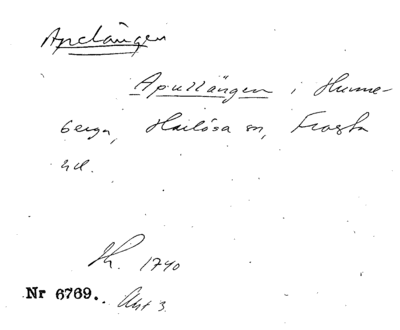 Apelängen
Apullängen i Hunne-
berga, Harlösa sn, Frosta
hd.
Sk. 1740
Nr 6769. Akt 3